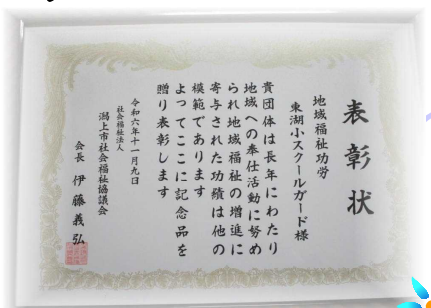 表彰状
地域福祉功労
東湖小スクールガード様
貴団体は長年にわたり
地域への奉仕活動に努め
られ地域福祉の増進に
寄与された功績は他の
模範であります
よってここに記念品を
贈り表彰します
令和六年十一月九日
社会福祉法人
潟上市社会福祉協議会
会長 伊藤義弘